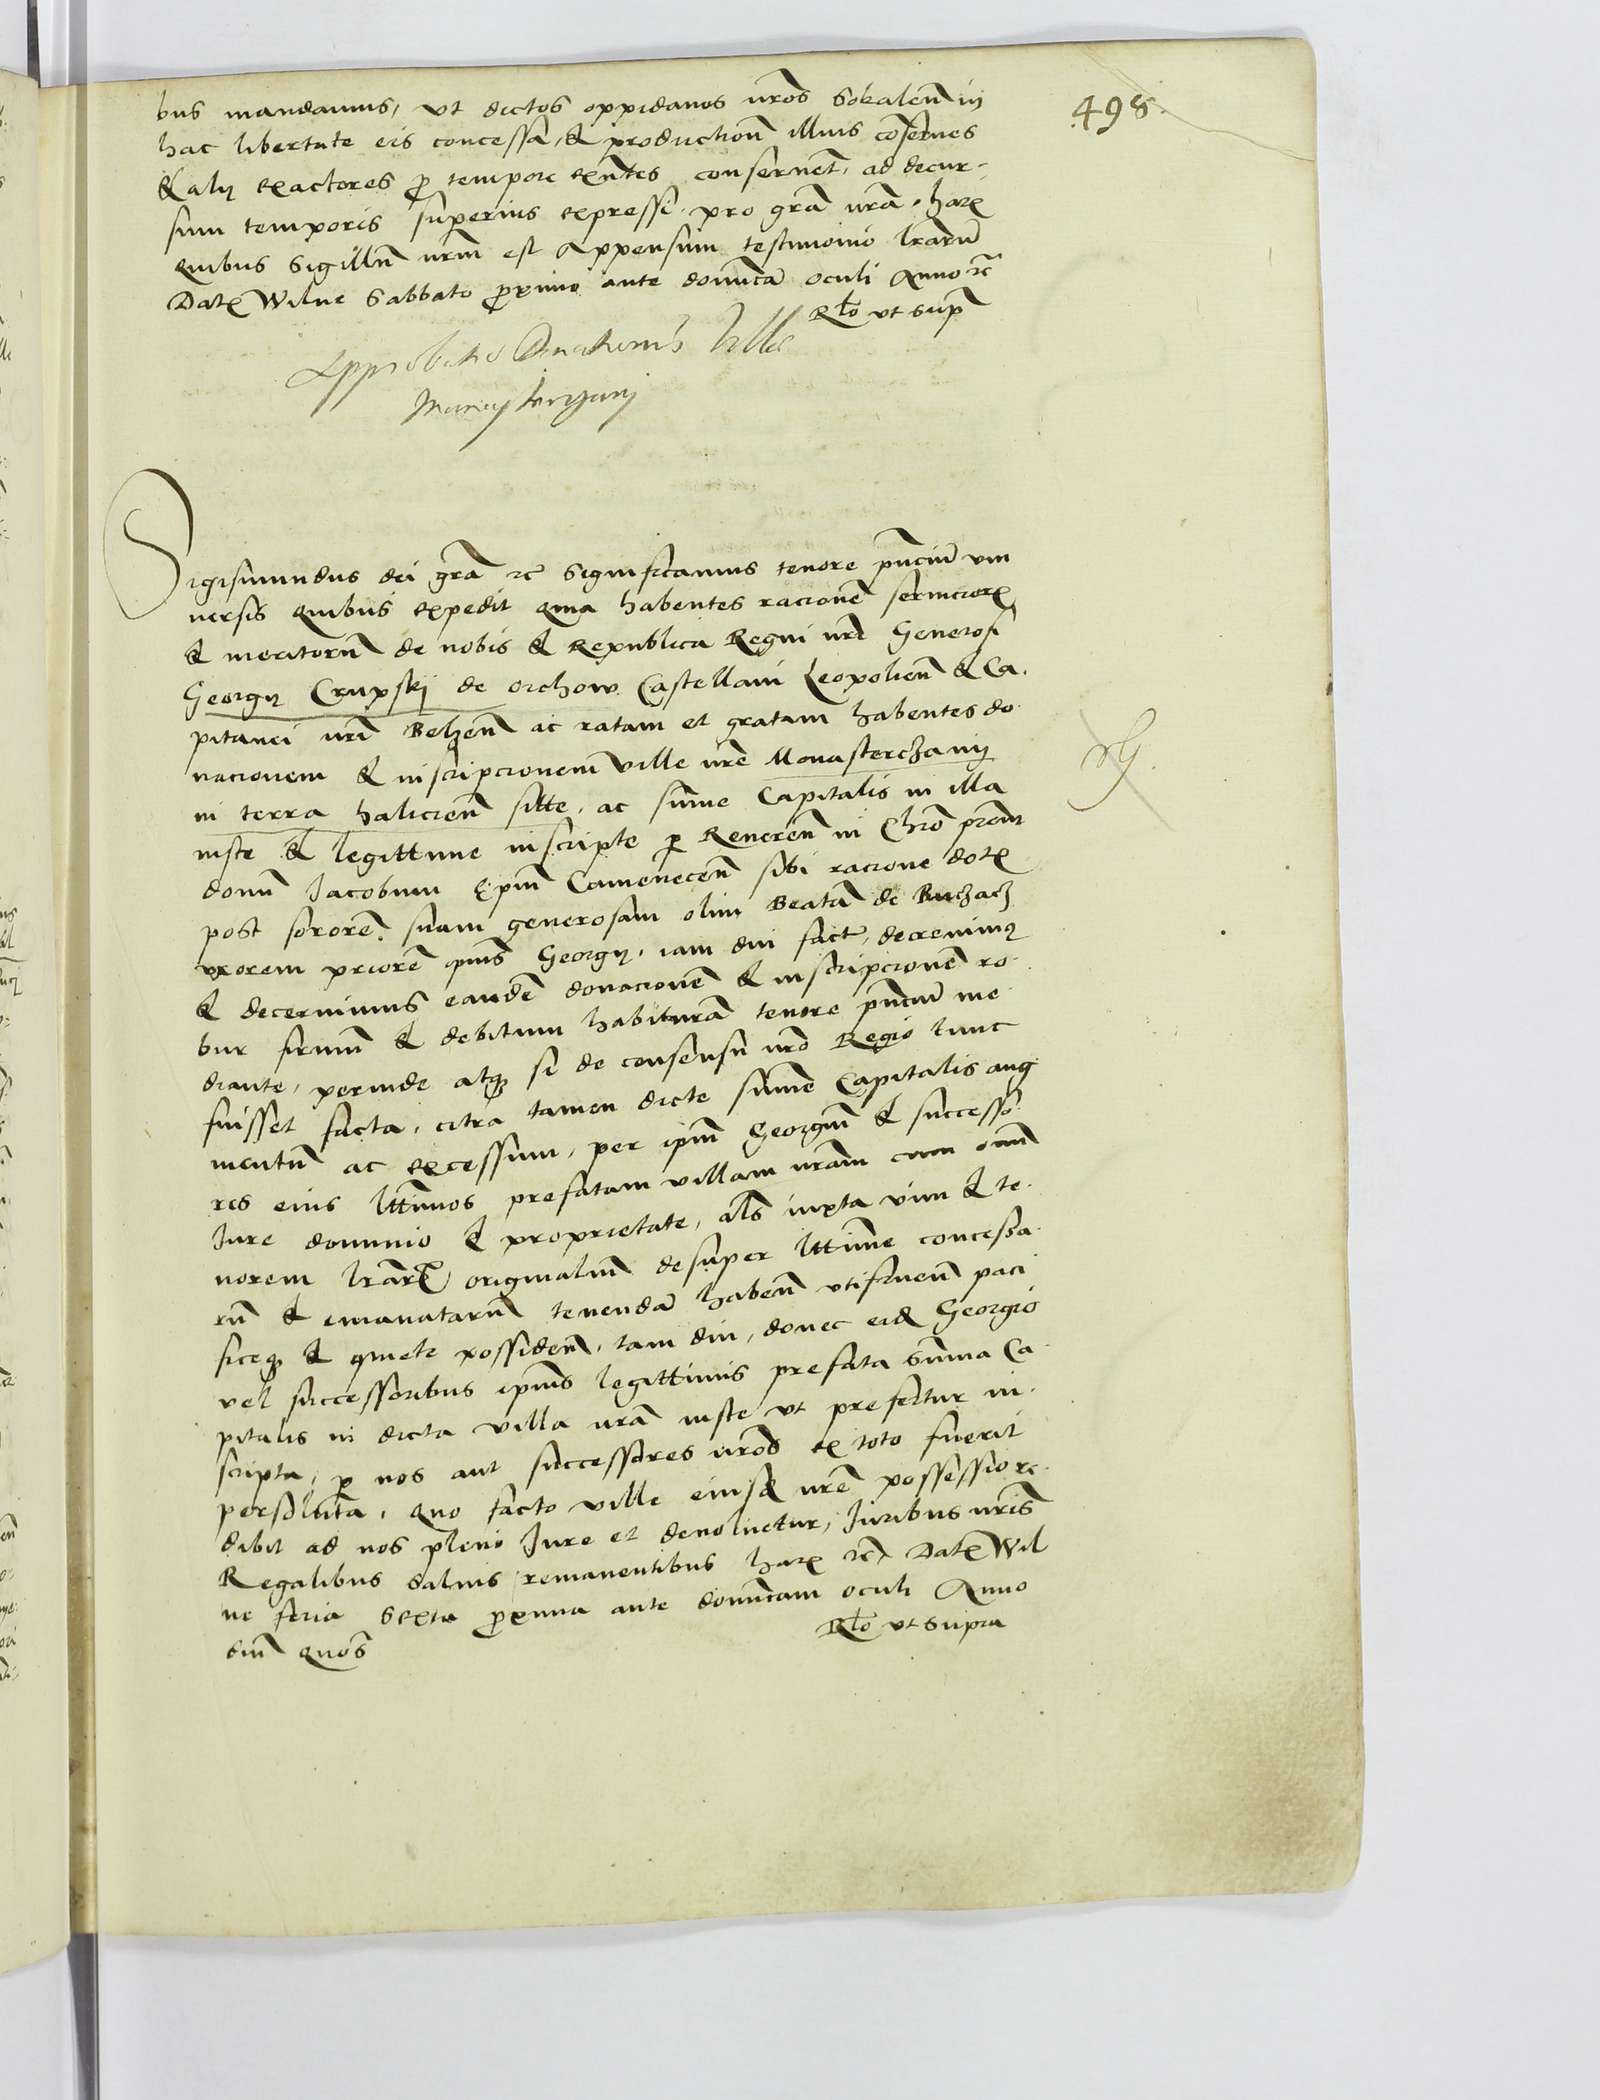 498.
bus mandamus, vt dictos oppidanos nr̃os Sokalen̄ in
hac libertate eis concessa, & productioñ illius cõseruẽs
& alij exactores ꝑ tempore exñtes conseruẽt, ad decur-
sum temporis superius expressi. pro grã nrã. harꝫ
quibus Sigillũ nr̃m est Appensum testimonio lr̃arũ
Datꝫ Wilne Sabbato ꝓximo ante dominicã oculi Anno ꝛc̃
Rłło vt supᷓ
Approbatio Donationis Ville
Monasterzanij
Sigismundus dei grã ꝛc̃ Significamus tenore pñciũ vni
uersis quibus expedit quia habentes racionẽ seruiciorꝫ
& meritorũ de nobis & Republica Regni nr̃i Generosi
Georgij Crupskij de orchow Castellani Leopolieñ & Ca-
pitanei nr̃i Belzeñ ac ratam et gratam habentes do-
nacionem & inscripcionem ville nr̃e Monasterczanij
in terra halicieñ sitte, ac sum̃e Capitalis in illa
iuste & legittime inscripte ꝑ Reuereñ in Chr̃o pr̃em
domĩ Jacobum Ep̃m Cameneceñ sibi racione dotꝫ
post sororẽ suam generosam olim Beatã de Buczacz
vxorem priorẽ ip̃ius Georgij, iam diu factẽ, decreuimꝰ
& decernimus eandẽ donacionẽ & inscripcionẽ ro-
bur firmũ & debitum habiturã tenore pñciũ me-
diante, perinde atqꝫ si de consensu nr̃o Regio tunc
fuisset facta, citra tamen dicte sum̃e Capitalis aug-
mentũ ac excessum, per ip̃m Georgiũ & successo-
res eius lttimos prefatam villam nr̃am cum om̃i
Jure dominio & proprietate, al̃s iuxta vim & te-
norem lr̃arꝫ originaliũ desuper lttime concessa-
rũ & emanatarũ tenendã habeñ vtifrueñ paci-
ficeqꝫ & quiete possideñ, tam diu, donec eidẽ Georgio
vel successoribus ip̃ius legittimis prefata Sum̃a Ca-
pitalis in dicta villa nr̃a iuste vt prefertur in-
scripta, ꝑ nos aut successores nr̃os ex toto fuerit
persoluta, quo facto ville eiusdẽ nr̃e possessio re-
dibit ad nos pleno Jure et deuoluetur, Juribus nr̃is
Regalibus saluis remanentibus harꝫ ꝛc̃ Datꝫ Wil
ne feria Sexta ꝓxima ante dominicam oculi Anno
dnĩ quo sᷓ
Rłło vt supra